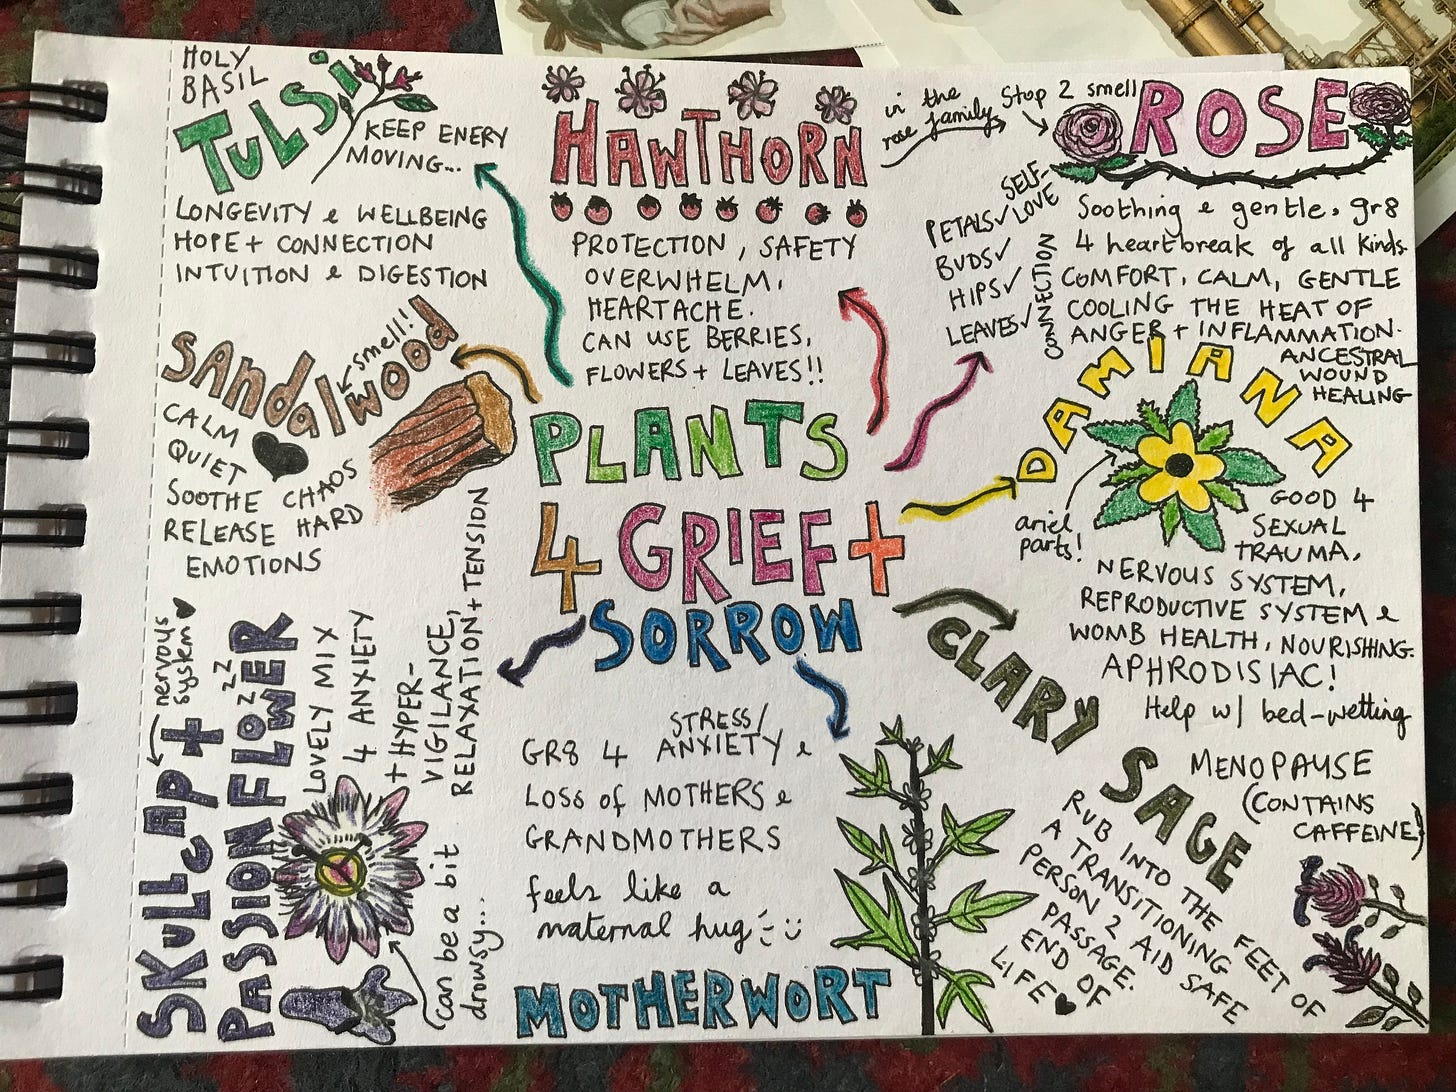 HOLY
BASIL
TULSi
KEEP ENERY
MOVING...
LONGEVITY & WELLBEING
HOPE + CONNECTION
INTUITION & DIGESTION
HAWTHORN
PROTECTION, SAFETY
OVERWHELM,
HEARTACHE.
CAN USE BERRIES,
FLOWERS + LEAVES!!
in the
rose family
Stop 2 smell
ROSE
SELF-
LOVE
PETALS✓
BUDS✓
HIPS✓
LEAVES✓
CONNECTION
Soothing & gentle, gr8
4 heartbreak of all kinds.
COMFORT, CALM, GENTLE
COOLING THE HEAT OF
ANGER + INFLAMMATION.
ANCESTRAL
WOUND
HEALING
SANdalwood
smell!
CALM
QUIET
SOOTHE CHAOS
RELEASE HARD
EMOTIONS
PLANTS
4 GRIEF +
SORROW
DAMIANA
ariel
parts!
GOOD 4
SEXUAL
TRAUMA,
NERVOUS SYSTEM,
REPRODUCTIVE SYSTEM &
WOMB HEALTH, NOURISHING.
APHRODISIAC!
Help w/ bed-wetting
nervous
system
SKULLCAP +
PASSION FLOWER
zzZ
LOVELY MIX
4 ANXIETY
+ HYPER-
VIGILANCE,
RELAXATION + TENSION
can be a bit
drowsy...
STRESS/
GR8 4 ANXIETY &
LOSS of MOTHERS &
GRANDMOTHERS
feels like a
maternal hug
MOTHERWORT
CLARY SAGE
MENOPAUSE
(CONTAINS
CAFFEINE)
RUB INTO THE FEET OF
A TRANSITIONING
PERSON 2 AID SAFE
PASSAGE.
END OF
LIFE